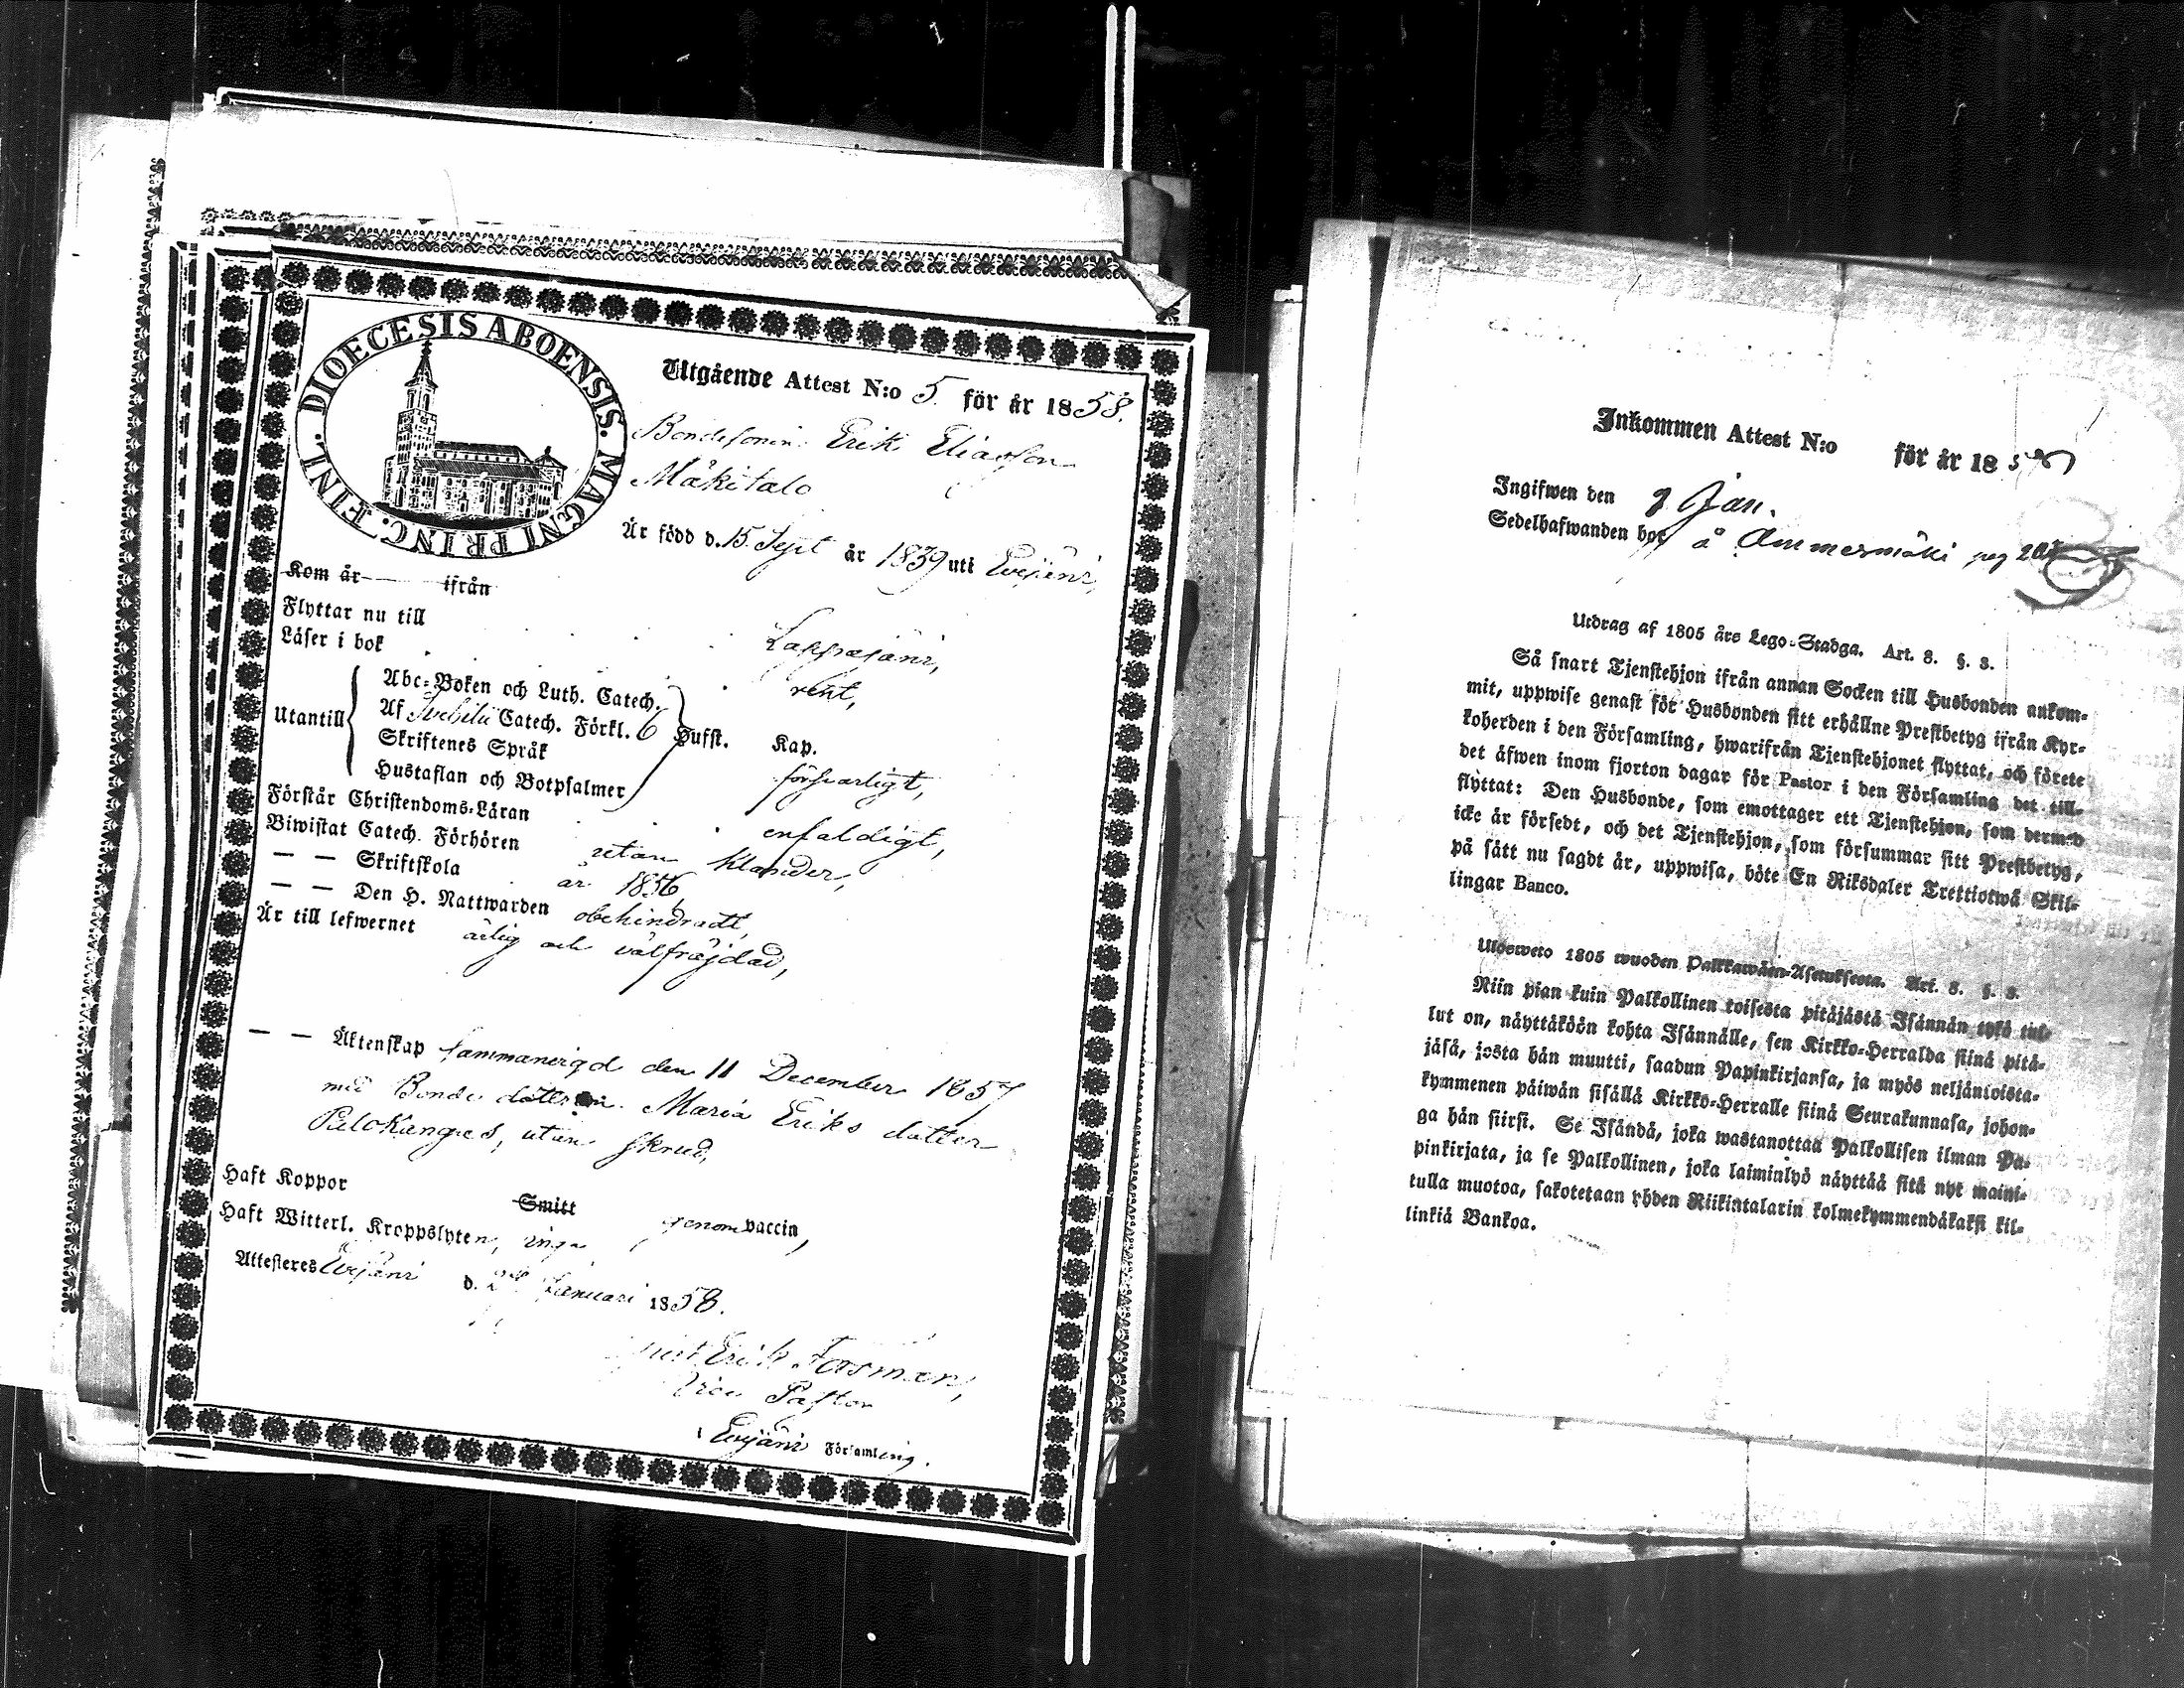 DIOECESIS ABOENSIS. MAGNI PRINC. FINL.
Utgående Attest N:o 5. för år 1858.
Bondesonen Erik Eliasson
Mäkitalo
Är född d. 15 Sept år 1839 uti Evijärvi,
Kom år ifrån
Flyttar nu till Lappajärvi,
Läser i bok rent,
Utantill
Abc-Boken och Luth. Catech.
Af Svebilii Catech. Förkl. 6 Hufst. Kap.
Skriftenes Språk försvarligt,
Hustaflan och Botpsalmer
Förstår Christendoms-Läran enfaldigt,
Biwistat Catech. Förhören utan klander,
— — Skriftskola år 1856,
— — Den H. Nattwarden obehindradt,
Är till lefwernet ärlig och välfräjdad,
— — Äktenskap sammanvigd den 11 December 1857
med Bonde dottren Maria Eriks dotter
Palokangas, utan skrud,
Haft Koppor Smitt genom vaccin,
Haft Witterl. Kroppslyten, inga
Attesteres Evijärvi d. 2 Januari 1858.
Erik Forsman,
Vice Pastor
Evijärvi Församling.
Inkommen Attest N:o för år 18 58
Ingifwen den 9 Jan.
Sedelhafwanden bor å Ammesmäki pag
Utdrag af 1805 års Lego-Stadga. Art. 8. §. 3.
Så snart Tjenstehjon ifrån annan Socken till Husbonden ankom-
mit, uppwise genast för Husbonden sitt erhållne Prestbetyg ifrån Kyr-
koherden i den Församling, hwarifrån Tjenstehjonet flyttat, och förete
det äfwen inom fjorton dagar för Pastor i den Församling det till-
flyttat: Den Husbonde, som emottager ett Tjenstehjon, som dermed
icke är försedt, och det Tjenstehjon, som försummar sitt Prestbetyg,
på sätt nu sagdt är, uppwisa, böte En Riksdaler Trettiotwå Skil-
lingar Banco.
Ulosweto 1805 wuoden Palkkawäen-Asetuksesta. Art. 8. §. 3.
Niin pian kuin Palkollinen toisesta pitäjästä Isännän tykö tul-
lut on, näyttäköön kohta Isännälle, sen Kirkko-Herralda siinä pitä-
jäsä, josta hän muutti, saadun Papinkirjansa, ja myös neljäntoista-
kymmenen päiwän sisällä Kirkko-Herralle siinä Seurakunnasa, johon-
ga hän siirsi. Se Isändä, joka wastanottaa Palkollisen ilman Pa-
pinkirjata, ja se Palkollinen, joka laiminlyö näyttää sitä nyt maini-
tulla muotoa, sakotetaan yhden Riikintalarin kolmekymmendäkaksi kil-
linkiä Bankoa.